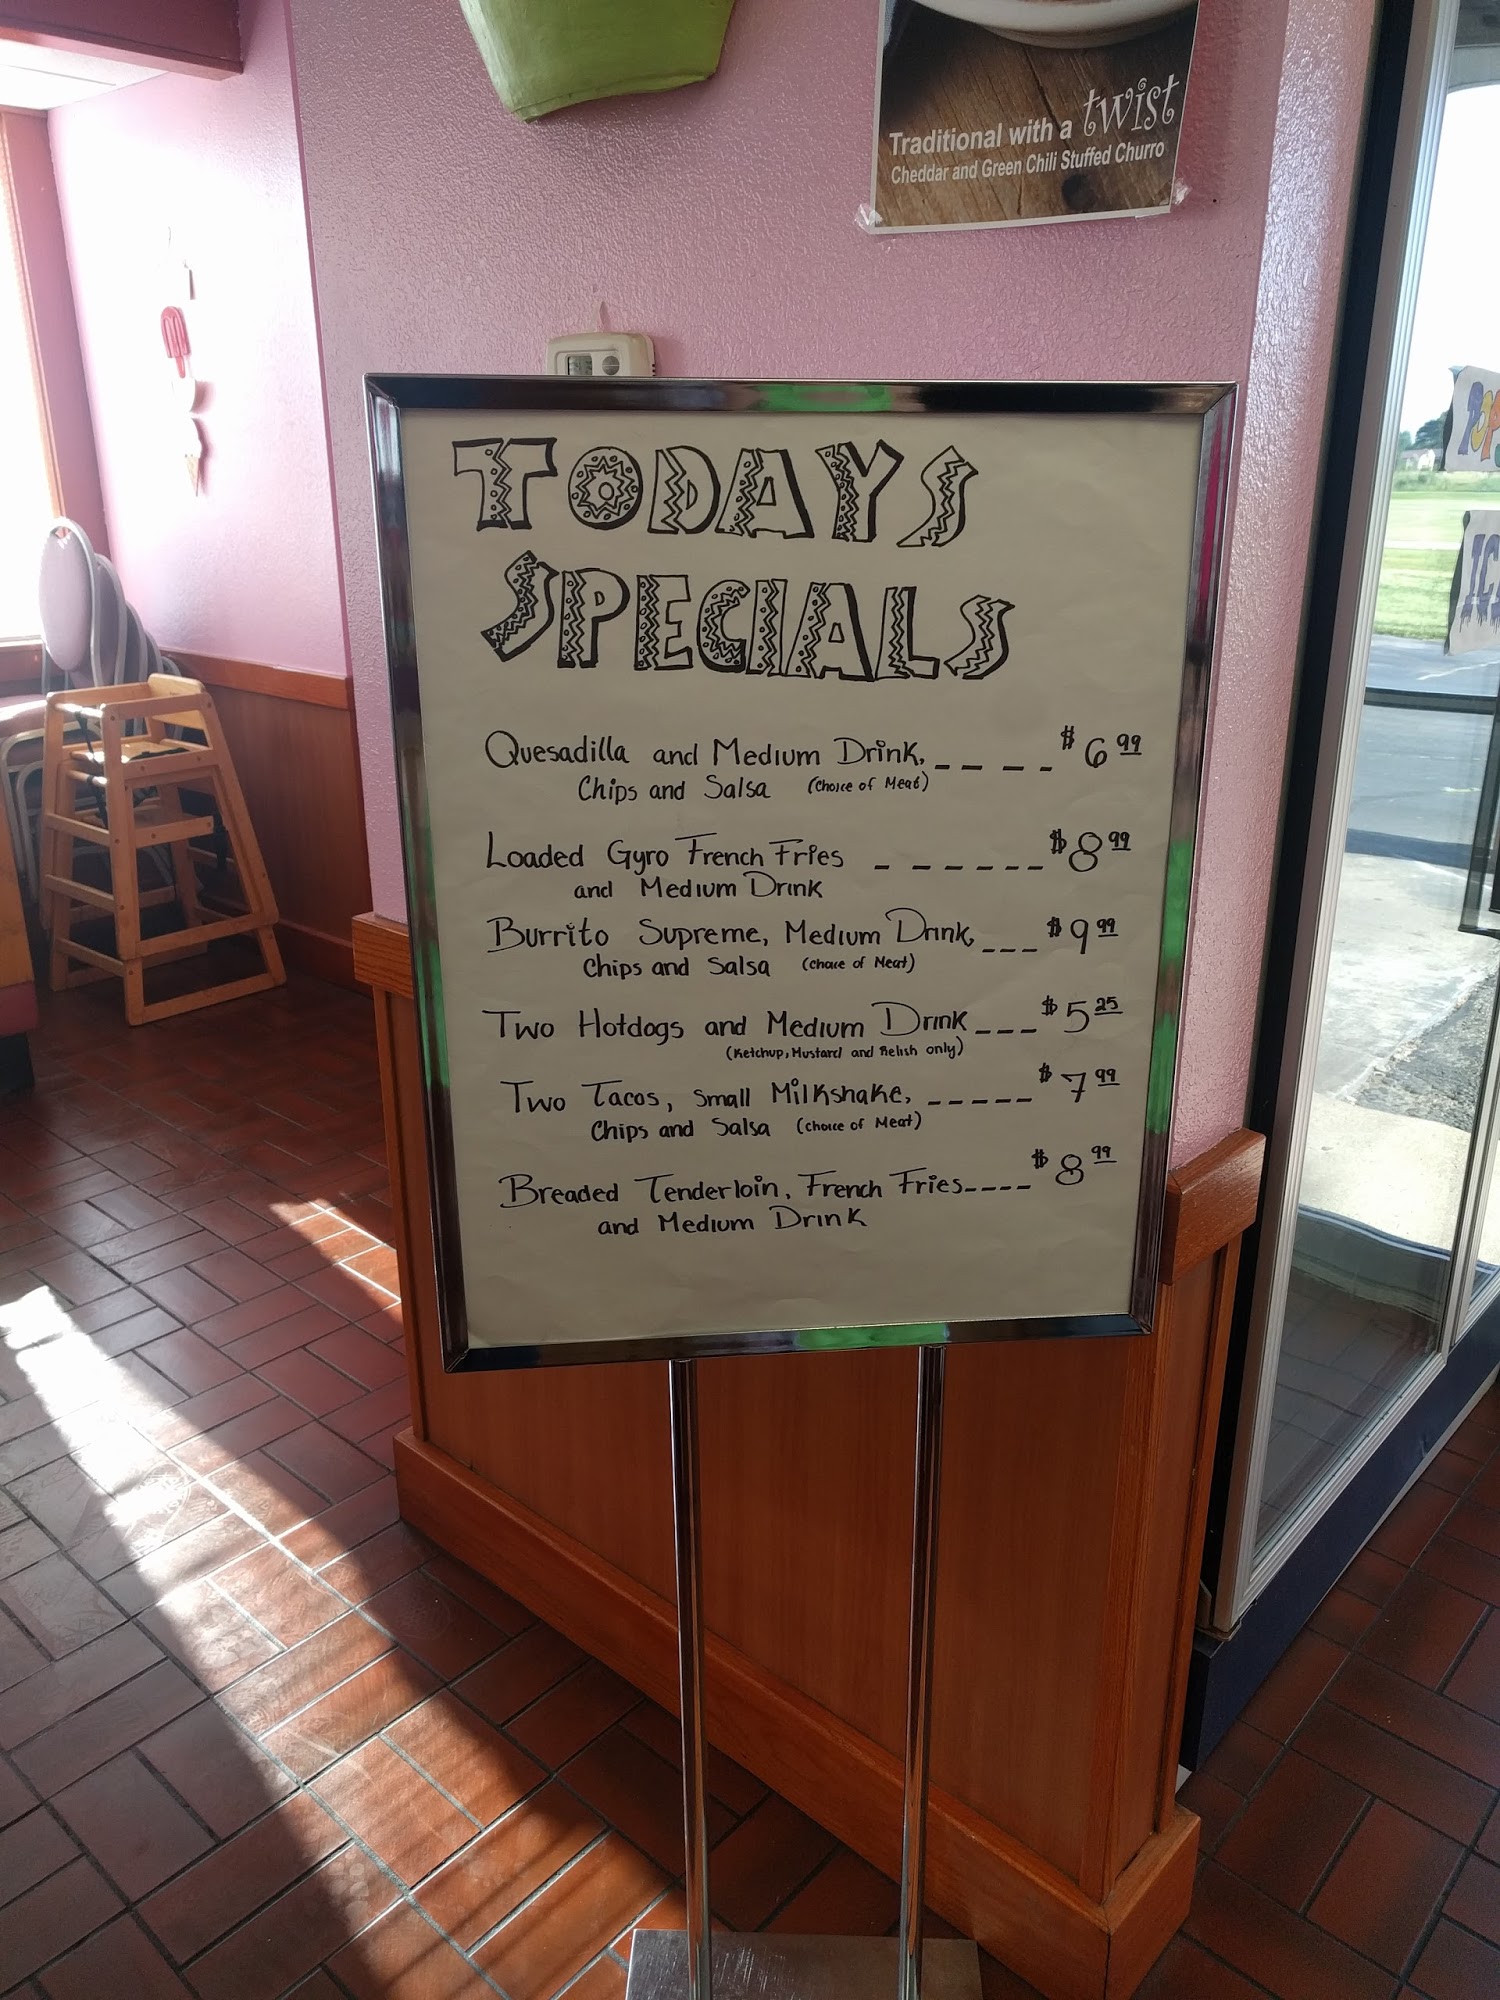 Traditional with a twist
Cheddar and Green Chili Stuffed Churro
TODAYS
SPECIALS
Quesadilla and Medium Drink, _ _ _ _ $6.99
Chips and Salsa (Choice of Meat)
Loaded Gyro French Fries _ _ _ _ _ _ $8.99
and Medium Drink
Burrito Supreme, Medium Drink, _ _ _ $9.99
Chips and Salsa (choice of Meat)
Two Hotdogs and Medium Drink _ _ _ $5.25
(Ketchup, Mustard and Relish only)
Two Tacos, Small Milkshake, _ _ _ _ _ $7.99
Chips and Salsa (choice of Meat)
Breaded Tenderloin, French Fries---- $8.99
and Medium Drink